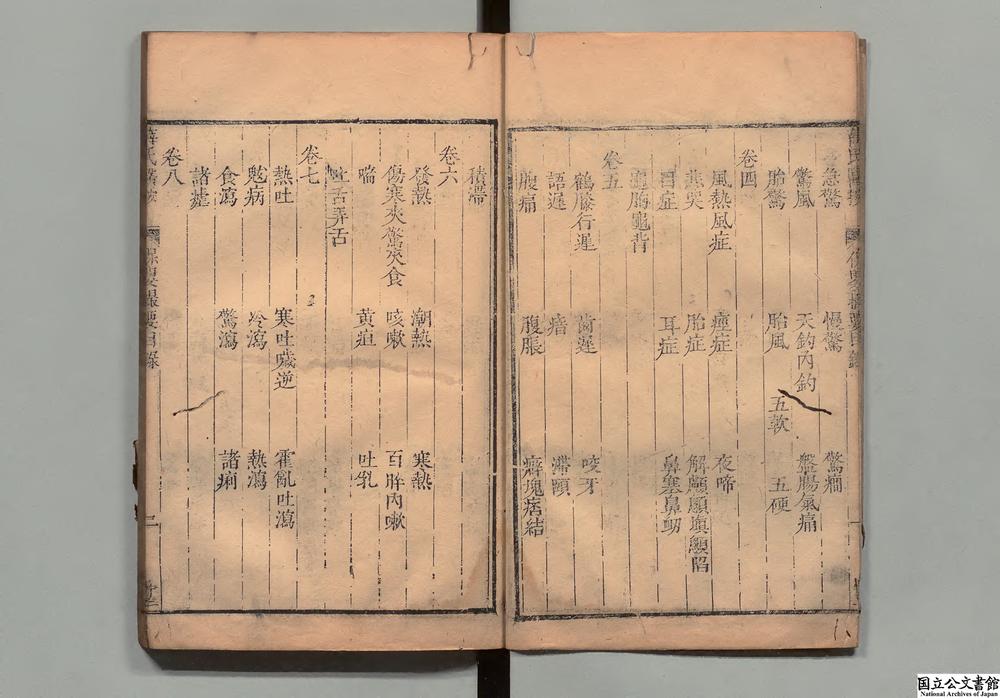 急驚 慢驚 驚癇
驚風 天釣內釣 盤腸氣痛
胎驚 胎風 五軟 五硬
卷四
風熱風症 痙症 夜啼
悲哭 胎症 解顱顖塡顖陷
目症 耳症 鼻塞鼻衂
龜胸龜背
卷五
鶴膝行遲 齒遲 咬牙
語遲 瘖 滯頤
腹痛 腹脹 癖塊痞結
積滯
卷六
發熱 潮熱 寒熱
傷寒夾驚夾食 咳嗽 百晬內嗽
喘 黃疸 吐乳
吐舌弄舌
卷七
熱吐 寒吐噦逆 霍亂吐瀉
鬾病 冷瀉 熱瀉
食瀉 驚瀉 諸痢
諸瘧
卷八
薛氏醫按 保嬰撮要目錄 二
国立公文書館
National Archives of Japan